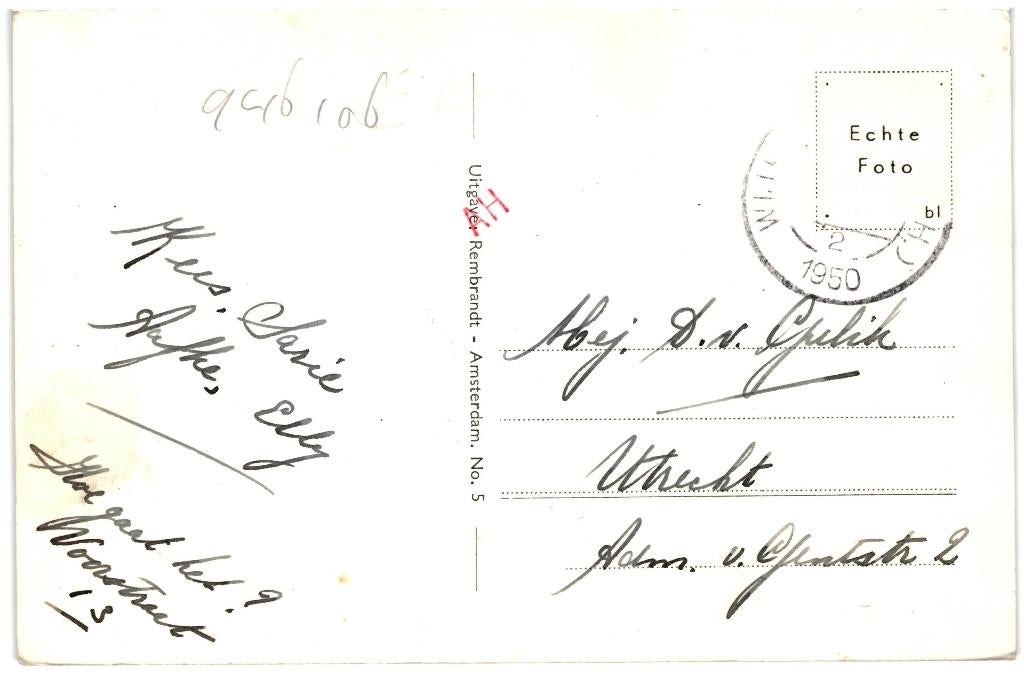 Kees, Sarie
Aafke, Elly
Hoe gaat het?
Voorstraat
13
Uitgave: Rembrandt - Amsterdam. No. 5
AH
Echte
Foto
bl
2
1950
Mej. D. v. Opelik
Utrecht
Adm. v. Gentstr 2